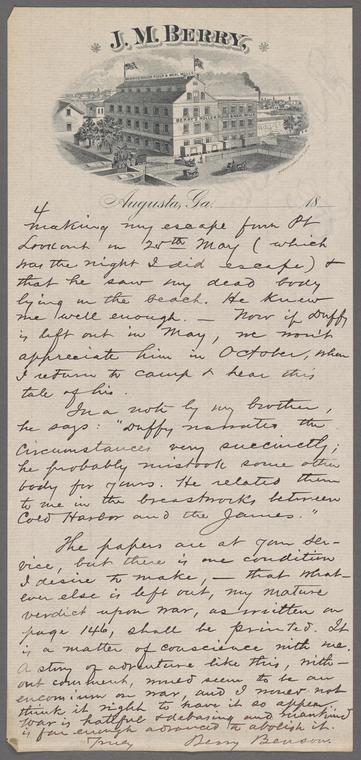 J. M. BERRY,
BERRY'S ROLLER FLOUR & MEAL MILLS
Augusta, Ga. 18
4
making my escape from Pt
Lookout on 20th May (which
was the night I did escape) &
that he saw my dead body
lying on the beach. He knew
me well enough. — Now if Duffy
is left out in May, we won't
appreciate him in October, when
I return to camp & hear this
tale of his.
In a note by my brother,
he says: "Duffy narrates the
circumstances very succinctly;
he probably mistook some other
body for yours. He related them
to me in the breastworks between
Cold Harbor and the James."
The papers are at your ser-
vice, but there is one condition
I desire to make, — that what-
ever else is left out, my mature
verdict upon war, as written on
page 146, shall be printed. It
is a matter of conscience with me.
A story of adventure like this, with-
out comment, would seem to be an
encomium on war, and I would not
think it right to have it so appear.
War is hateful & debasing and mankind
is far enough advanced to abolish it.
Truly Berry Benson.